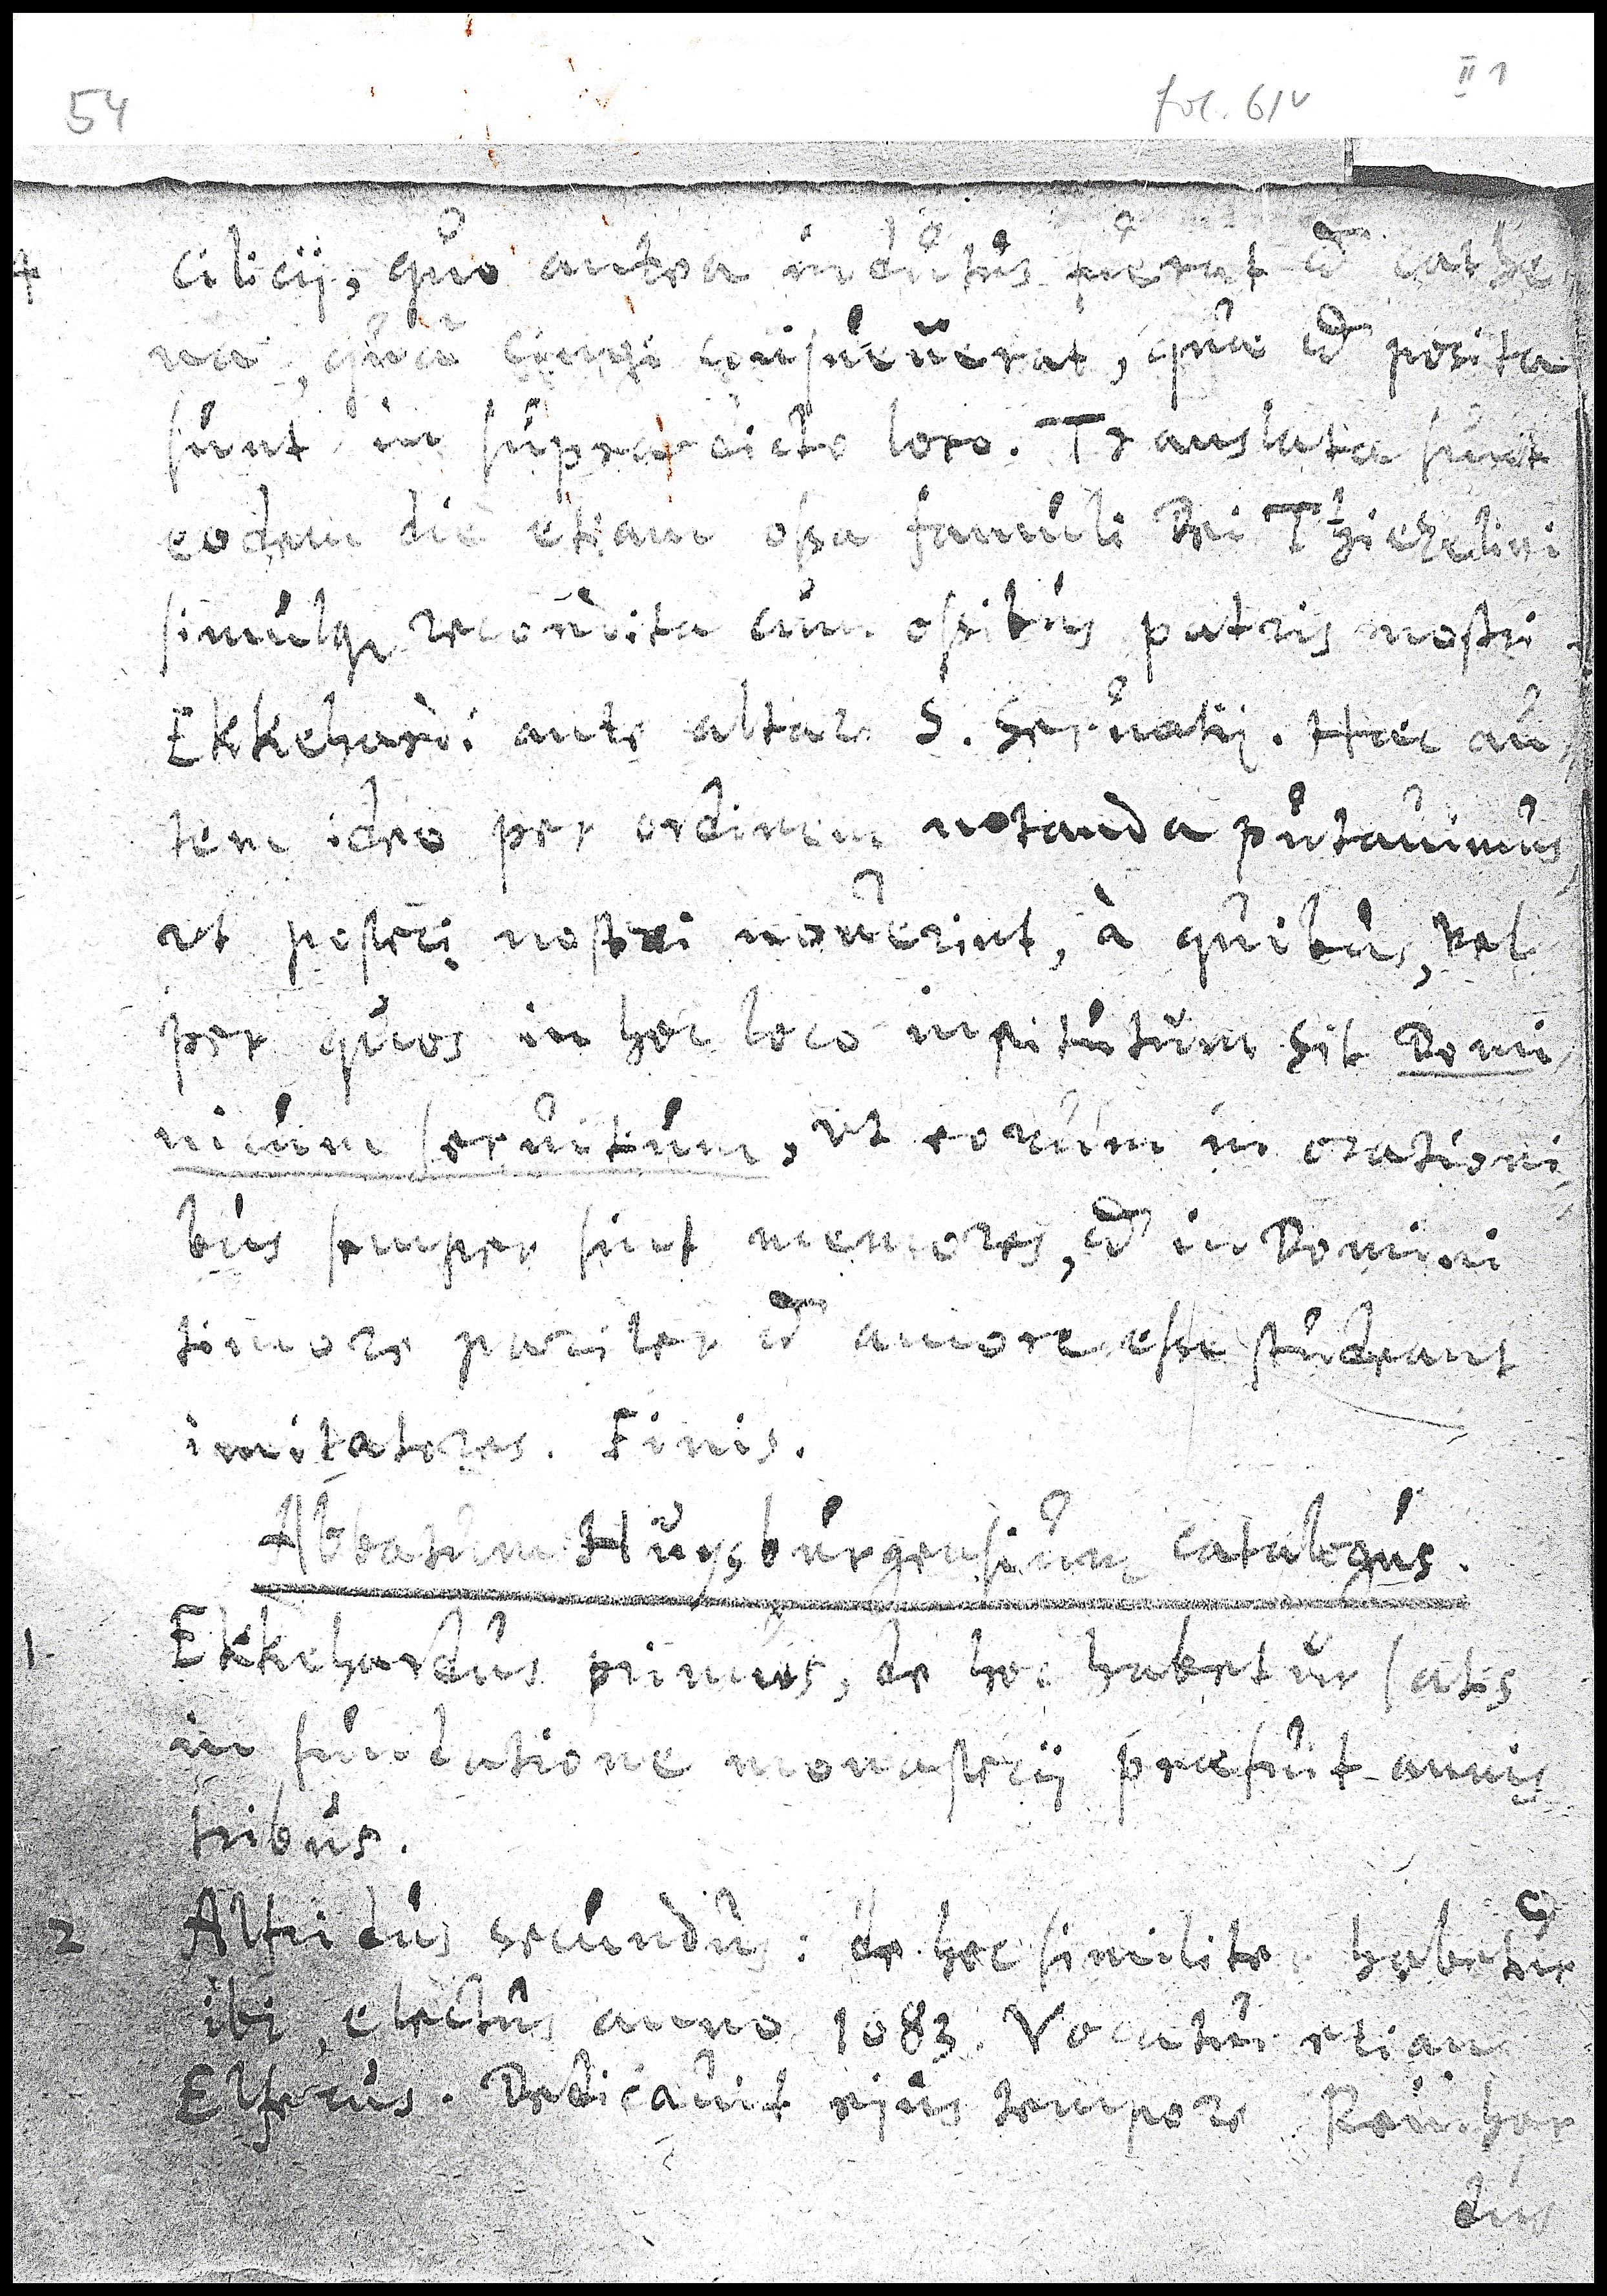 54 fol. 61v II 1
cilicij, quo antea indutus fuerat et cathe,
na, qua cingi consueuerat, quae et posita
sunt in supra dicto loco. Translata sunt
eodem die etiam ossa famuli Dei Thiezelini
simulq; recondita cum ossibus patris nostri
Ekkehardi ante altare S. Seruatij. Haec au,
tem ideo per ordinem notanda putauimus,
vt posteri nostri nouerint, à quibus, vel
per quos in hoc loco institutum sit Domi,
nicum seruitium, vt eorum in orationi,
bus semper sint memores, et in Domini
timore pariter et amore esse studeant
imitatores. Finis.
Abbatum Huysburgensium catalogus.
1. Ekkehardus primus, de hoc habetur satis
in fundatione monasterij praefuit annis
tribus.
2 Alfridus secundus: de hoc similiter habetur
ibi, electus anno 1083. Vocatus etiam
Elfercus. Dedicauit ejus tempore Reinhar
dus